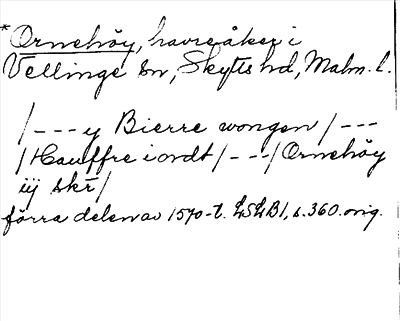 *Ornehöy, havreåker i
Vellinge sn, Skytts hd, Malm. l.
/---y Bierre wongen/---
/Hauffre iordt/---/Ornehöy
iij skr̄/
förra delen av 1570-t. LSLB1, s. 360. orig.